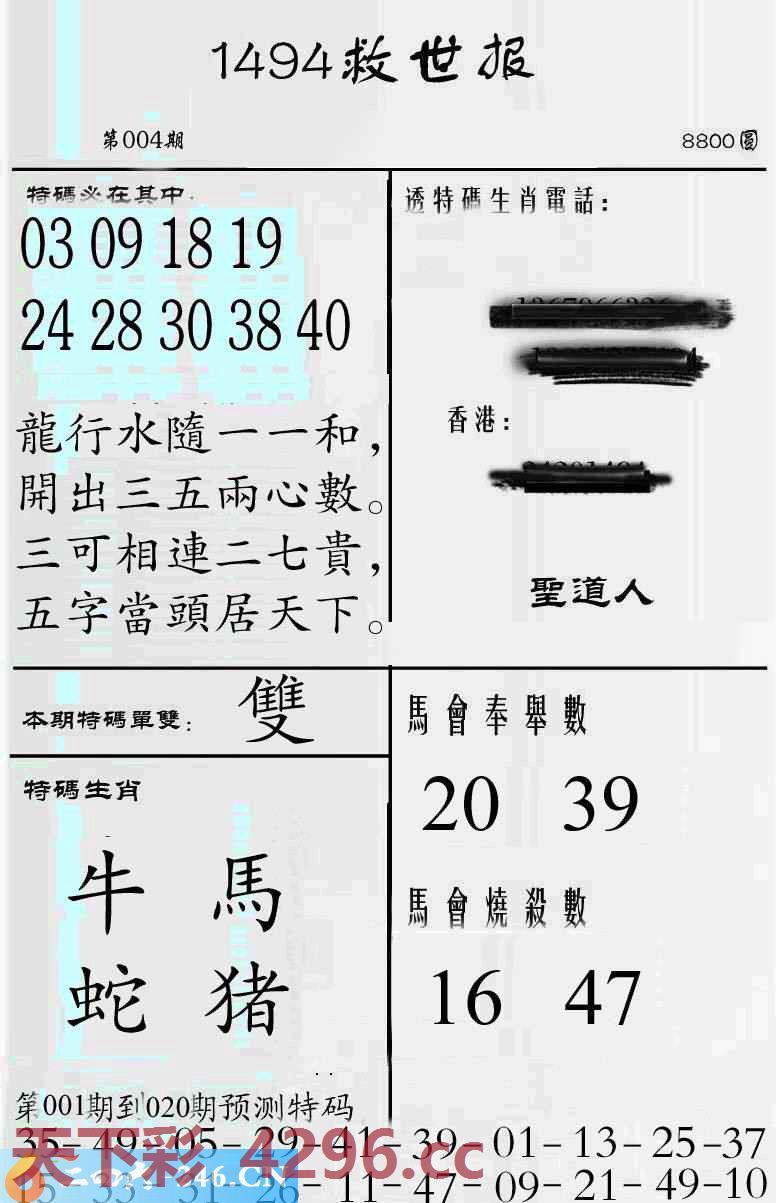 1494救世报
第004期
8800圓
特碼必在其中:
03 09 18 19
24 28 30 38 40
龍行水隨一一和，
開出三五兩心數。
三可相連二七貴，
五字當頭居天下。
透特碼生肖電話:
香港:
聖道人
本期特碼單雙:
雙
特碼生肖
牛 馬
蛇 猪
馬會奉舉數
20 39
馬會燒殺數
16 47
第001期到020期预测特码
35-49-05-29-41-39-01-13-25-37
天下彩 4296.cc
246.CN
15-33-31-26-11-47-09-21-49-10